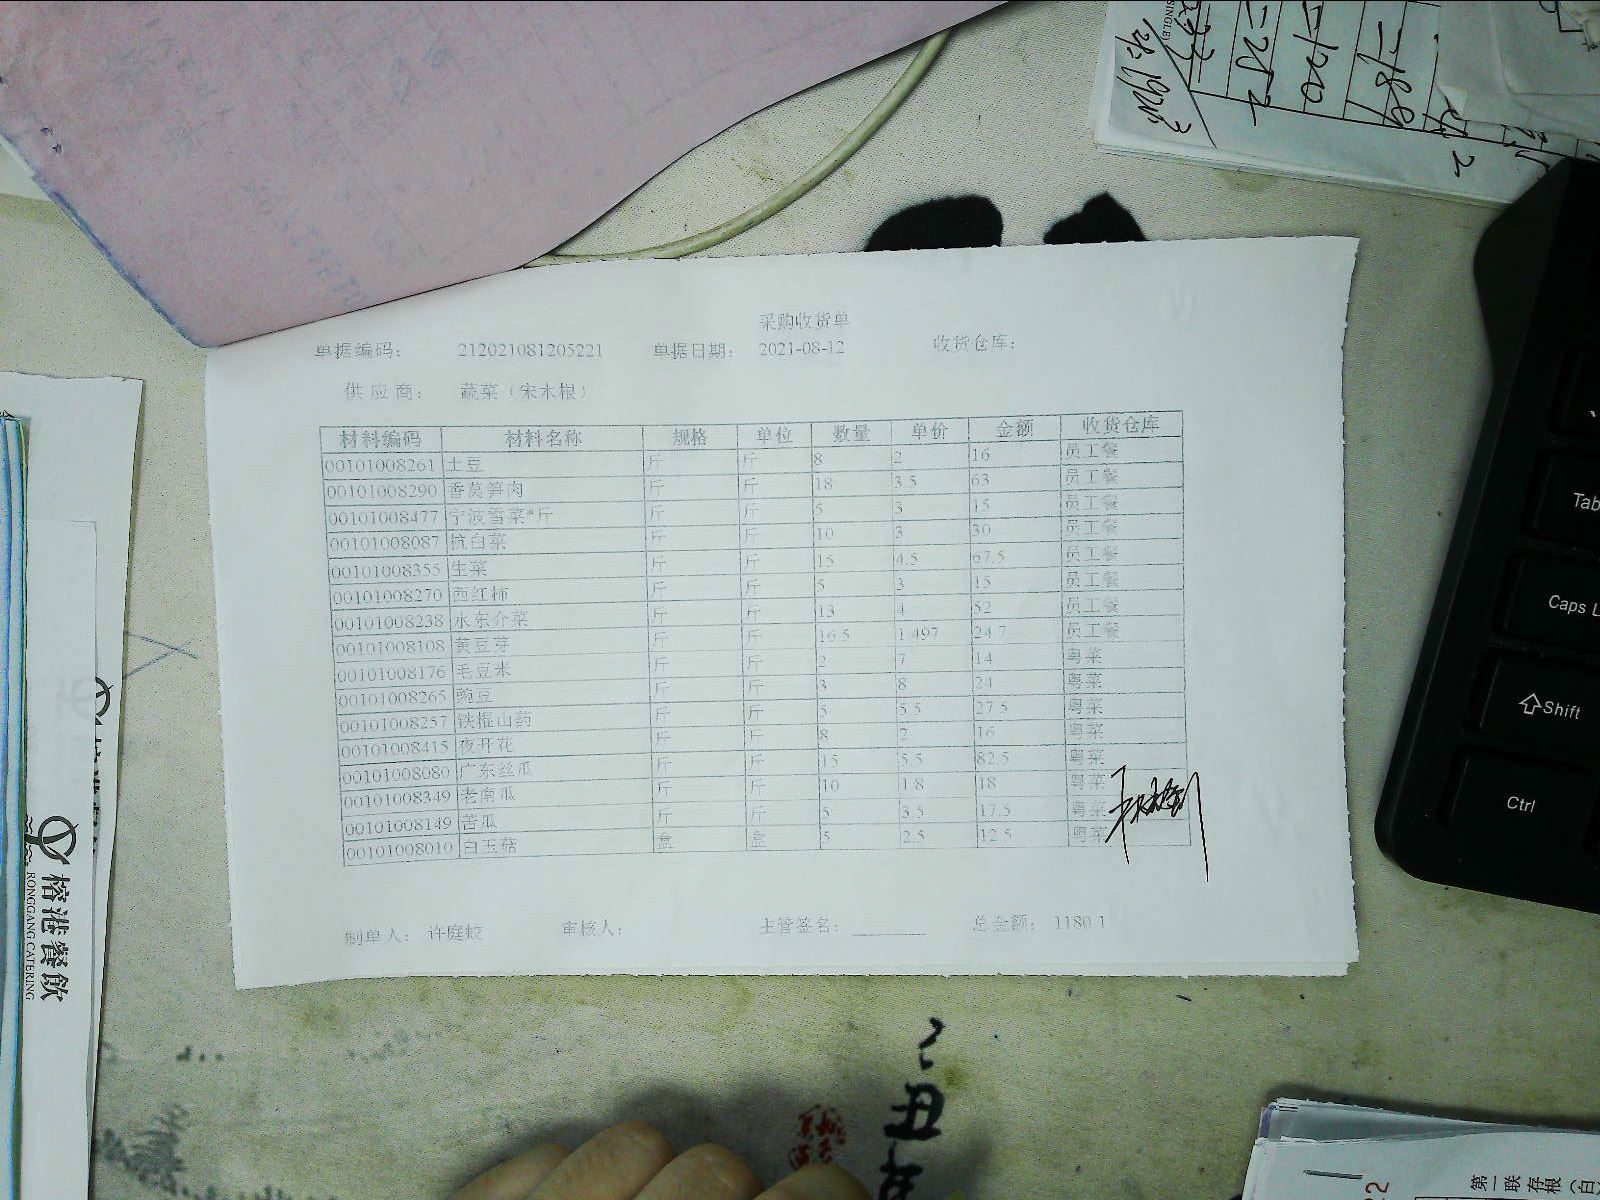 采购收货单
单据编码： 212021081205221 单据日期： 2021-08-12 收货仓库：
供应商： 蔬菜（宋木根）
材料编码 材料名称 规格 单位 数量 单价 金额 收货仓库
00101008261 土豆 斤 斤 8 2 16 员工餐
00101008290 香莴笋肉 斤 斤 18 3.5 63 员工餐
00101008477 宁波雪菜*斤 斤 斤 5 3 15 员工餐
00101008087 杭白菜 斤 斤 10 3 30 员工餐
00101008355 生菜 斤 斤 15 4.5 67.5 员工餐
00101008270 西红柿 斤 斤 5 3 15 员工餐
00101008238 水东介菜 斤 斤 13 4 52 员工餐
00101008108 黄豆芽 斤 斤 16.5 1.497 24.7 员工餐
00101008176 毛豆米 斤 斤 2 7 14 粤菜
00101008265 豌豆 斤 斤 3 8 24 粤菜
00101008257 铁棍山药 斤 斤 5 5.5 27.5 粤菜
00101008415 夜开花 斤 斤 8 2 16 粤菜
00101008080 广东丝瓜 斤 斤 15 5.5 82.5 粤菜
00101008349 老南瓜 斤 斤 10 1.8 18 粤菜
00101008149 苦瓜 斤 斤 5 3.5 17.5 粤菜
00101008010 白玉菇 盒 盒 5 2.5 12.5 粤菜
制单人： 许庭蛟 审核人： 主管签名： 总金额： 1180.1
榕港餐飲
RONGGANG CATERING
Tab
Caps L
Shift
Ctrl
丑
第一联存根（白